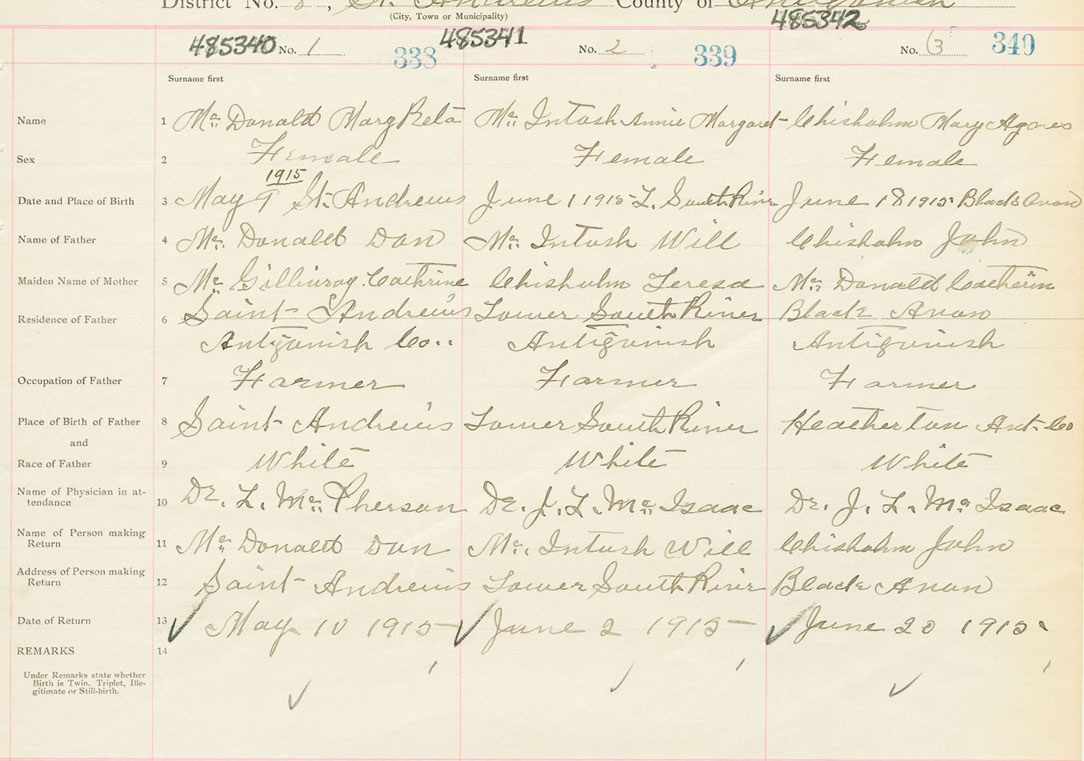 District No. 8, St. Andrews County of Antigonish
(City, Town or Municipality)
485340 No. 1 338 485341 No. 2 339 485342 No. 3 340
Surname first Surname first Surname first
Name 1 McDonald Mary Reta McIntosh Annie Margaret Chisholm Mary Agnes
Sex 2 Female Female Female
1915
Date and Place of Birth 3 May 9 St. Andrews June 1 1915 L. South River June 18 1915 Black Avon
Name of Father 4 McDonald Dan McIntosh Will Chisholm John
Maiden Name of Mother 5 McGillivray Cathrine Chisholm Teresa McDonald Catherin
Residence of Father 6 Saint Andrew's Lower South River Black Avon
Antigonish Co.. Antigonish Antigonish
Occupation of Father 7 Farmer Farmer Farmer
Place of Birth of Father 8 Saint Andrew's Lower South River Heatherton Ant. Co
and
Race of Father 9 White White White
Name of Physician in at-
tendance 10 Dr. L. McPherson Dr. J. L. McIsaac Dr. J. L. McIsaac
Name of Person making
Return 11 McDonald Dan McIntosh Will Chisholm John
Address of Person making
Return 12 Saint Andrew's Lower South River Black Avon
Date of Return 13 May 10 1915 June 2 1915 June 20 1915
REMARKS 14
Under Remarks state whether
Birth is Twin, Triplet, Ille-
gitimate or Still-birth.